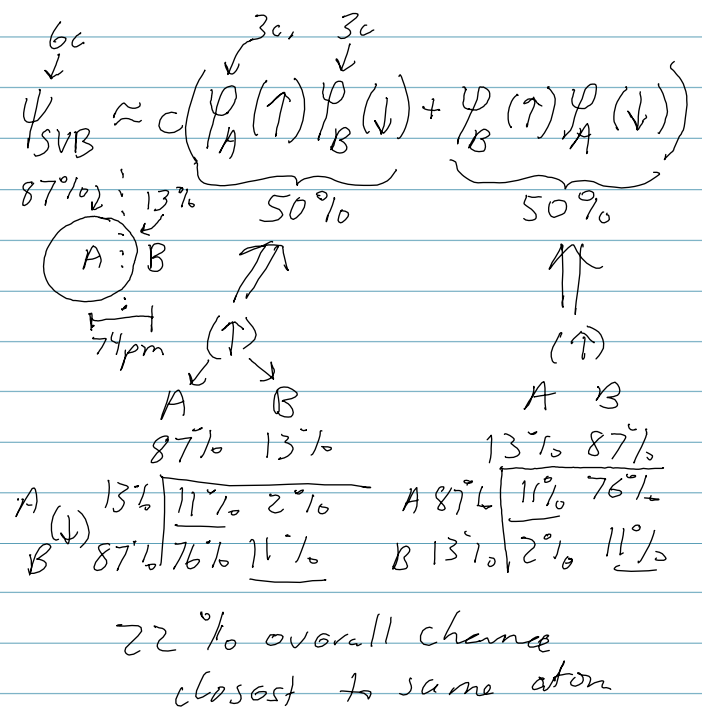 6c 3c, 3c
ψ_SVB ≈ c(φ_A(↑)φ_B(↓) + φ_B(↑)φ_A(↓))
87% 13% 50% 50%
A B
74pm (↑) (↑)
A B A B
87% 13% 13% 87%
A 13% 11% 2% A 87% 11% 76%
(↓)
B 87% 76% 11% B 13% 2% 11%
22% overall chance
closest to same atom